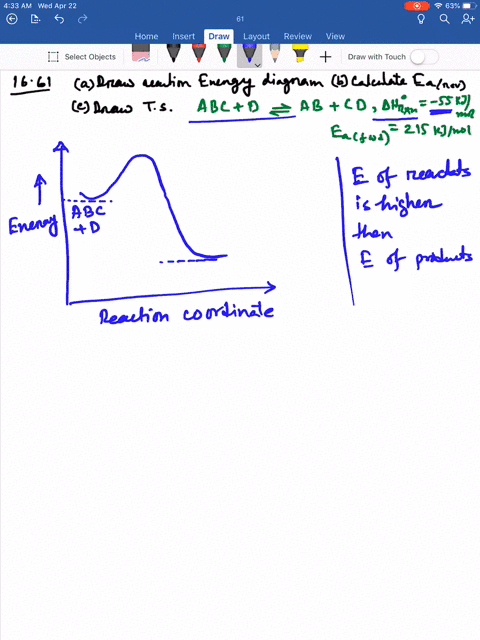 4:33 AM Wed Apr 22
63%
61
Home Insert Draw Layout Review View
Select Objects
Draw with Touch
16.61 (a) Draw reaction Energy diagram (b) Calculate Ea(rev)
(c) Draw T.S. ABC + D ⇌ AB + CD, ΔH°rxn = -55 kJ/mol
Ea(fwd) = 215 kJ/mol
Energy
ABC
+ D
Reaction coordinate
E of reactats
is higher
then
E of products